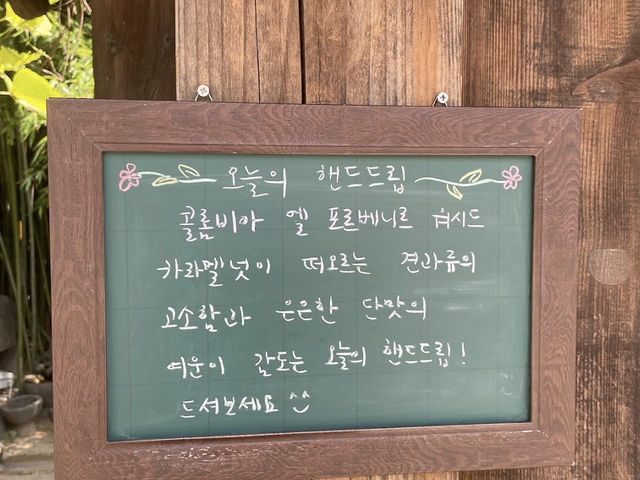 오늘의 핸드드립
콜롬비아 엘 포르베니르 워시드
카라멜넛이 떠오르는 견과류의
고소함과 은은한 단맛의
여운이 감도는 오늘의 핸드드립!
드셔보세요 ^^